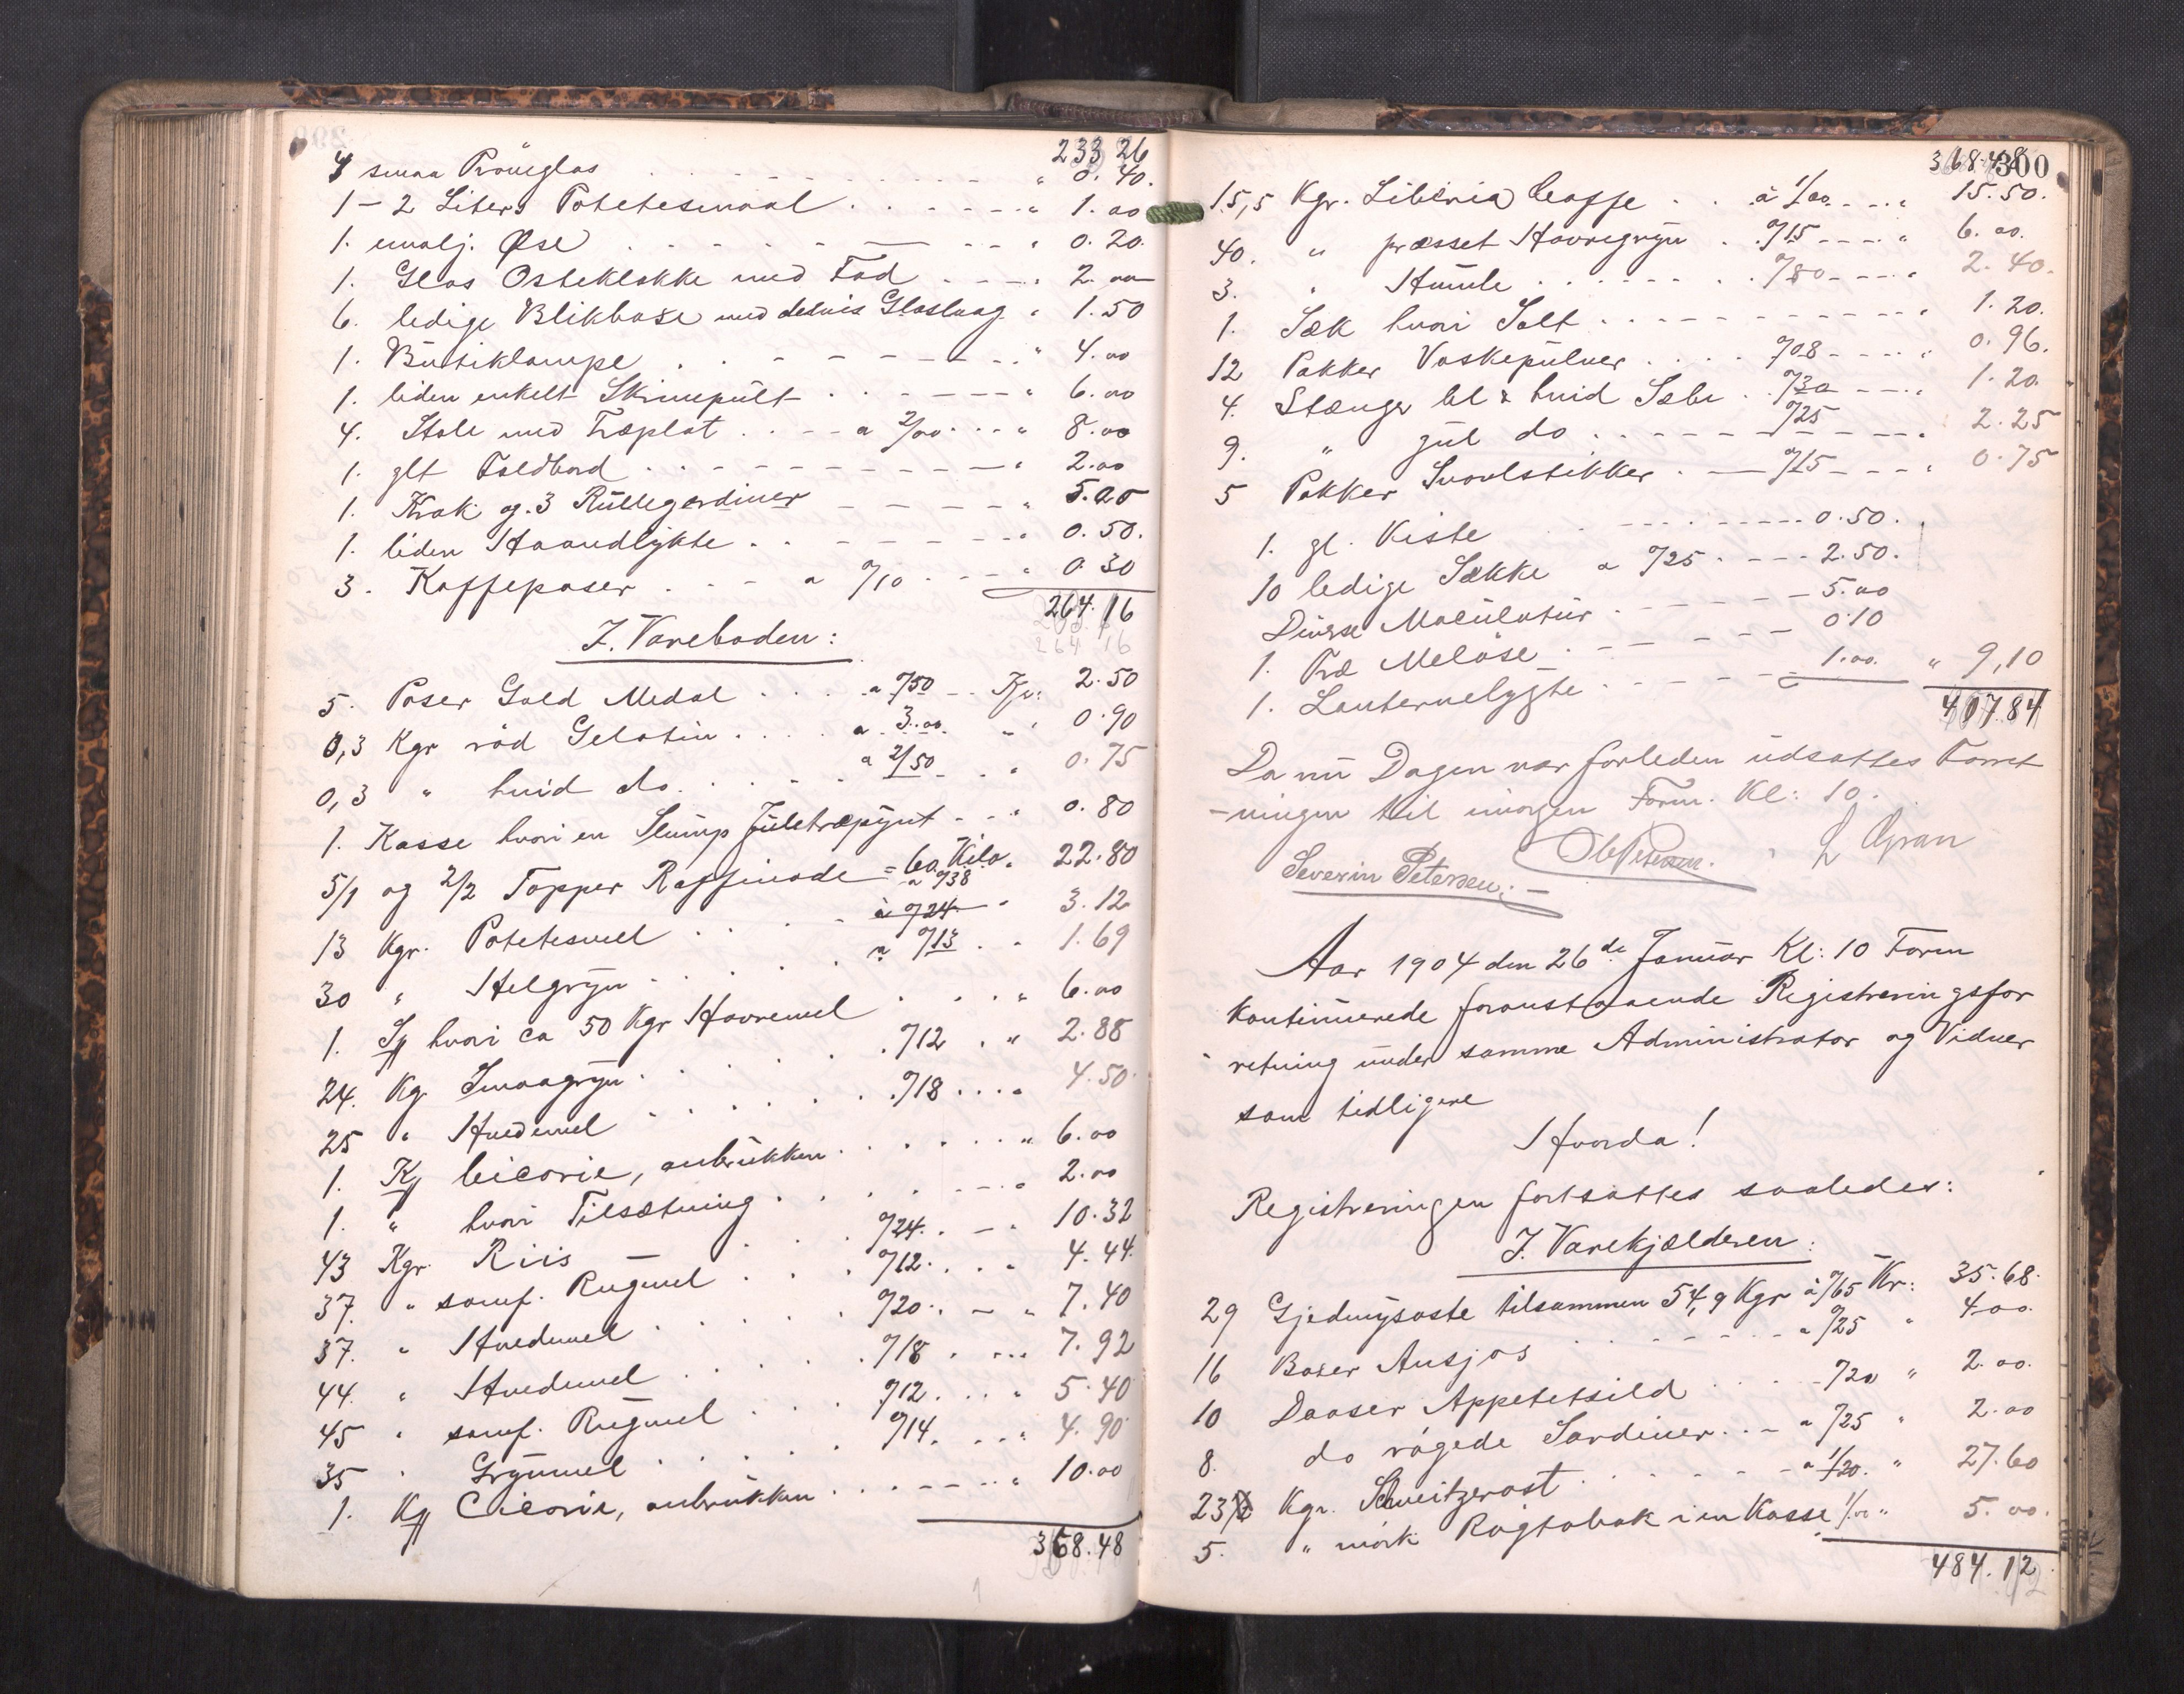 233 26
4 smaa Prøveglas . . . . " 0.40.
1 - 2 Liters Potetesmaal . . . . " 1.00
1. emalj. Øse . . . . " 0.20.
1. Glas Osteklokke med Fad . . . . 2.00
6. ledige Blikbokse med delvis Glaslaag " 1.50
1. Butiklampe . . . . " 4.00
1. liden enkelt Skrivepult . . . . " 6.00
4. Stole med Træplat . . . a 2/00 . . " 8.00
1. glt Foldbord . . . . " 2.00
1. Krak og 3 Rullegardiner . . . . " 5.00
1. liden Haandlykte . . . . " 0.50.
3. Kaffeposer . . . a 0/10 . . . " 0.30
264.16
264 16
I. Vareboden:
5. Poser Gold Medal . . . a 0/50 . . Kr: 2.50
0,3 Kgr rød Gelatin . . . a 3.00 " 0.90
0,3 " hvid do. . . . a 2/50 . . " 0.75
1. Kasse hvori en Slump Juletræpynt . . " 0.80
5/1 og 2/2 Topper Raffinade = 60 Kilo a 0/38 " 22.80
13 Kgr. Potetesmel . . . . à 0/24 " 3.12
30 " Helgryn . . . . a 0/13 . . 1.69
1. Sk hvori ca 50 Kgr Havremel . . . " 6.00
24. Kg Smaagryn . . . . 0/12 . " 2.88
25 " Hvedemel . . . . 0/18 . . . 4.50
1. Ks Cicorie, anbrukken . . . . " 6.00
1. " hvori Tilsætning . . . . " 2.00
43 Kgr. Riis . . . . 0/24 . . " 10.32
37. " samf. Rugmel . . . 0/12 . . . 4.44.
37. " Hvedemel . . . . 0/20 . . " 7.40
44. " Hvedemel . . . . 0/18 . . . 7.92
45 " samf. Rugmel . . . 0/12 . . . 5.40
35 " Grynmel . . . . 0/14 . . . 4.90
1. Ks Cicorie, anbrukken . . . . " 10.00
368.48
368.48
300
15,5 Kgr. Liberia Caffe . . à 1/00 . . " 15.50.
40. " presset Havregryn . 0/15 . . . " 6.00.
3. " Humle . . . . 0/80 . . . " 2.40.
1. Sæk hvori Salt . . . . " 1.20.
12 Pakker Vaskepulver . . . 0/08 . . . " 0.96.
4. Stænger bl & hvid Sæbe . 0/30 . . . 1.20.
9. " gul do . . . 0/25 . . . 2.25
5 Pakker Svovlstikker . . 0/15 . . . " 0.75
1. gl. Kiste . . . . 0.50.
10 ledige Sække a 0/25 . . . 2.50.
Diverse Maculatur . . . . 5.00
1. Træ Meløse . . . . 0.10
1. Lanternelygte . . . . 1.00. " 9,10
407.84
Da nu Dagen var forleden udsattes Forret
-ningen til imorgen Form. Kl: 10.
Severin Petersen. - L Gran
Aar 1904 den 26de Januar Kl: 10 Form
kontinuerede foranstaaende Registreringsfor
retning under samme Administrator og Vidner
som tidligere
Hvorda!
Registreringen fortsattes saaledes:
I. Varekjælderen:
29 Gjedmysoste tilsammen 54,9 Kgr à 0/65 Kr: 35.68.
16 Boxer Ansjos . . . . a 0/25 " 4.00.
10 Daaser Appetetsild . . . . 0/20 " 2.00.
8. do røgede Sardiner . . . a 0/25 " 2.00
23 Kgr. Schweitzerost . . . . a 1/20. " 27.60
5. " mørk Røgtobak i en Kasse 1/00 " 5.00.
484.12